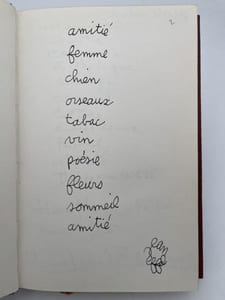 2
amitié
femme
chien
oiseaux
tabac
vin
poésie
fleurs
sommeil
amitié
Jean
Effel